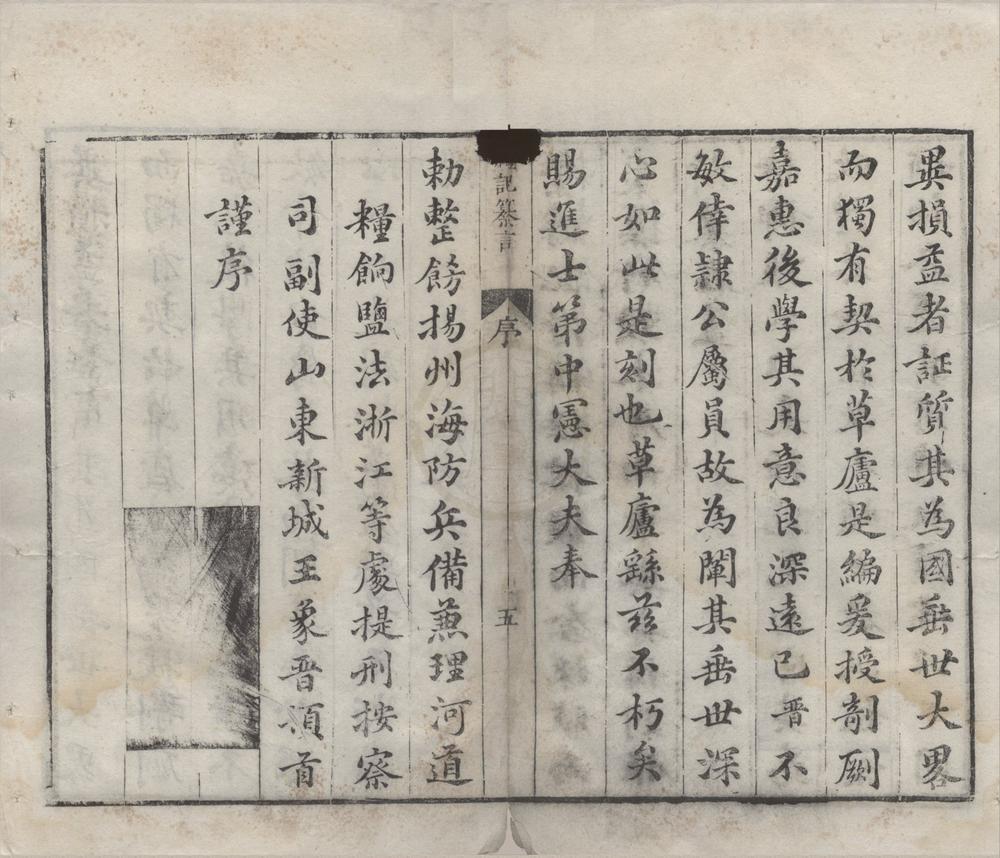 異損益者証質其為國垂世大畧
而獨有契於草廬是編爰授剞劂
嘉惠後學其用意良深遠已晋不
敏倖隷公屬員故為闡其垂世深
心如此是刻也草廬繇兹不朽矣
賜進士第中憲大夫奉
記纂言
序
五
勅整飭揚州海防兵備兼理河道
糧餉鹽法浙江等處提刑按察
司副使山東新城王象晋頓首
謹序